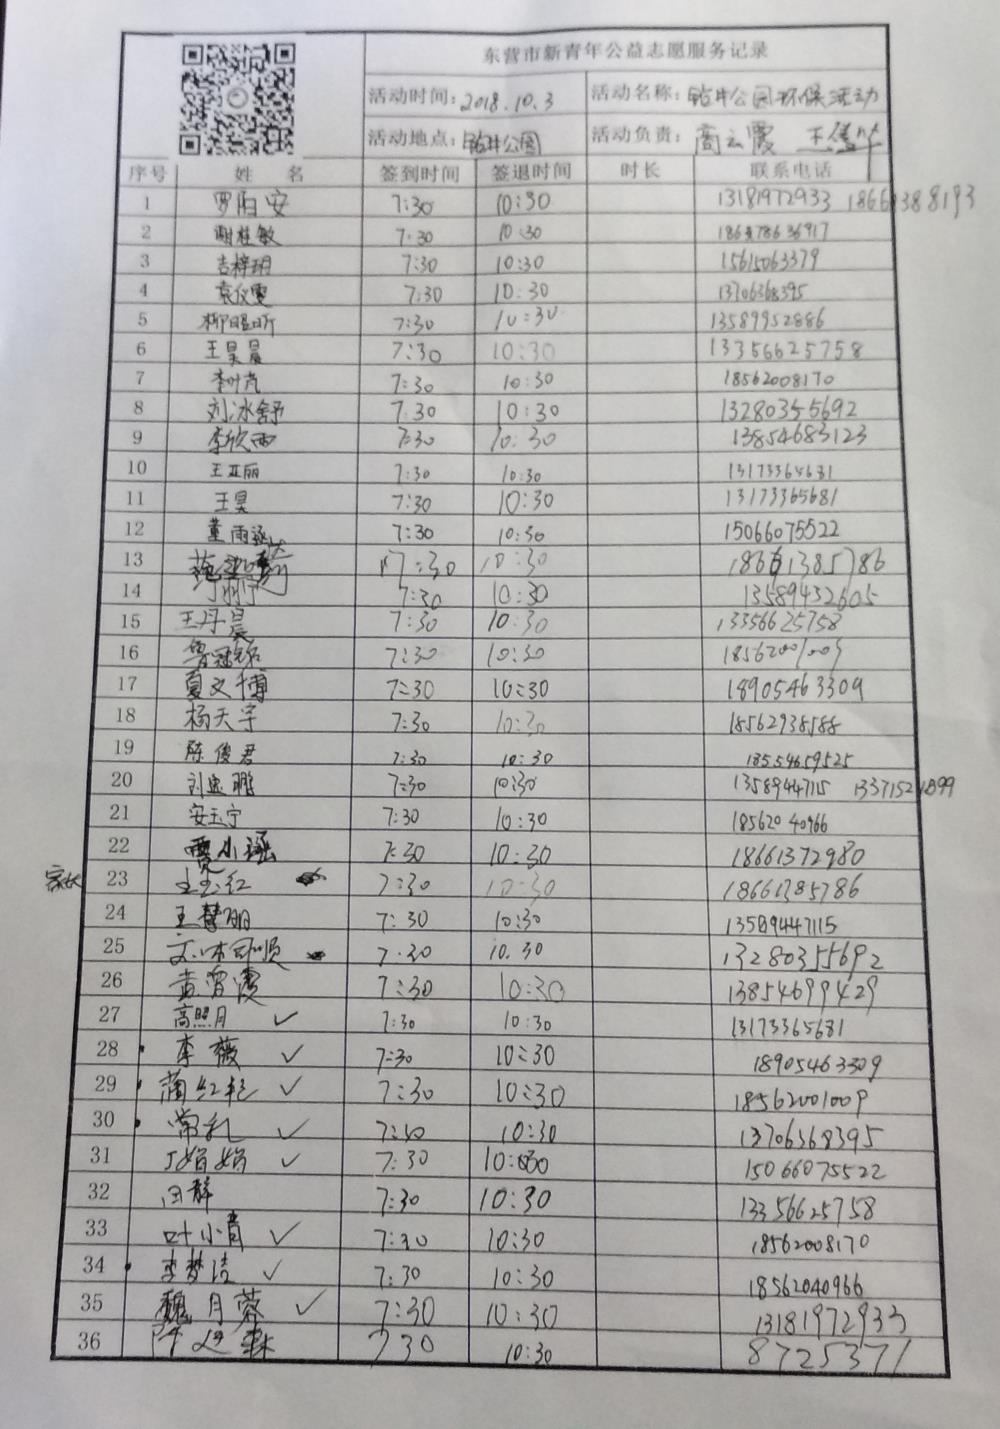 东营市新青年公益志愿服务记录
活动时间:2018.10.3 活动名称:钻井公园环保活动
活动地点:钻井公园 活动负责:商云霞
序号 姓 名 签到时间 签退时间 时长 联系电话
1 7:30 10:30 13181972933
2 谢桂敏 7:30 10:30
3 吉梓玥 7:30 10:30 15615063379
4 袁仪雯 7:30 10:30 13706368395
5 柳昭昕 7:30 10:30 13589952886
6 王昊晨 7:30 10:30 13356625758
7 李叶芃 7:30 10:30 18562008170
8 刘冰舒 7:30 10:30 13280355692
9 李欣雨 7:30 10:30 13854683123
10 王亚丽 7:30 10:30
11 王昊 7:30 10:30 13173365681
12 董雨涵 7:30 10:30 15066075522
13 7:30 10:30 18661385786
14 7:30 10:30 13589432605
15 王丹晨 7:30 10:30 13356625758
16 7:30 10:30 18562001009
17 夏文博 7:30 10:30 18905463309
18 杨天宇 7:30 10:30 18562938588
19 陈俊君 7:30 10:30 18554659525
20 7:30 10:30 13589447115
21 安玉宁 7:30 10:30 18562040966
22 贾小瑶 7:30 10:30 18661372980
家长 23 7:30 10:30 18661385786
24 王慧丽 7:30 10:30 13589447115
25 7:30 10:30 13280355692
26 黄曾霞 7:30 10:30 13854699429
27 高照月 ✓ 7:30 10:30 13173365681
28 李薇 ✓ 7:30 10:30 18905463309
29 蔺红艳 ✓ 7:30 10:30 18562001009
30 常礼 ✓ 7:30 10:30 13706368395
31 丁娟娟 ✓ 7:30 10:30 15066075522
32 田静 7:30 10:30 13356625758
33 叶小青 ✓ 7:30 10:30 18562008170
34 李梦洁 ✓ 7:30 10:30 18562040966
35 魏月蓉 ✓ 7:30 10:30 13181972933
36 7 30 10:30 8725371